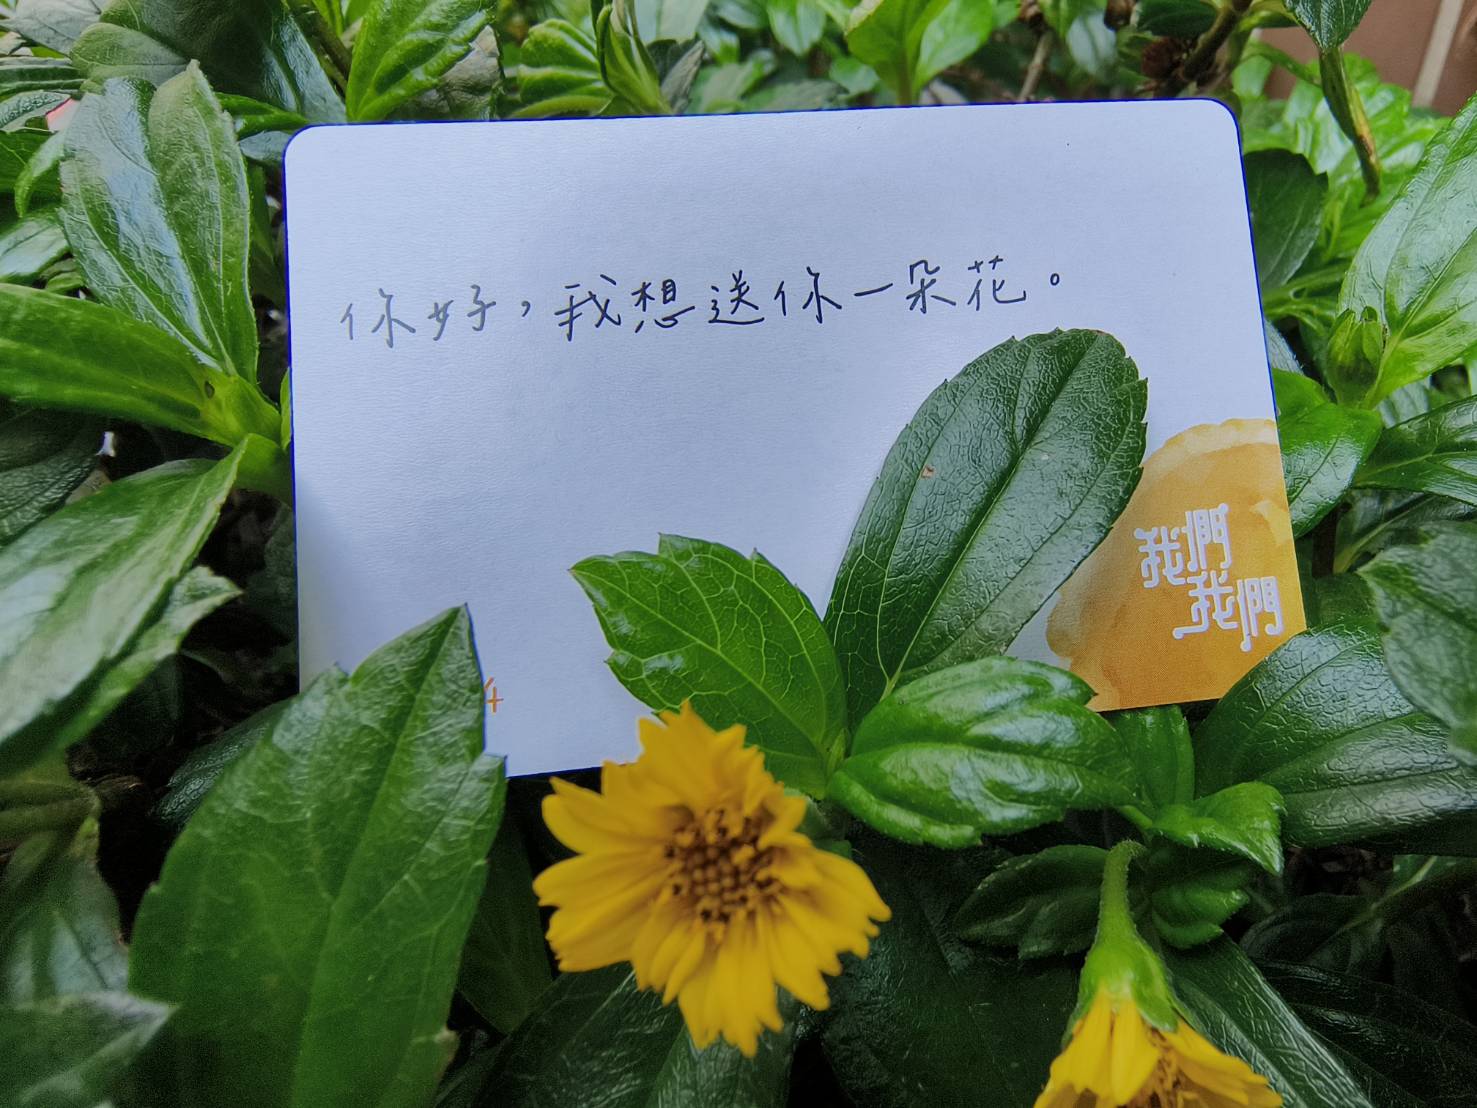 你好，我想送你一朵花。
我們
我們
4